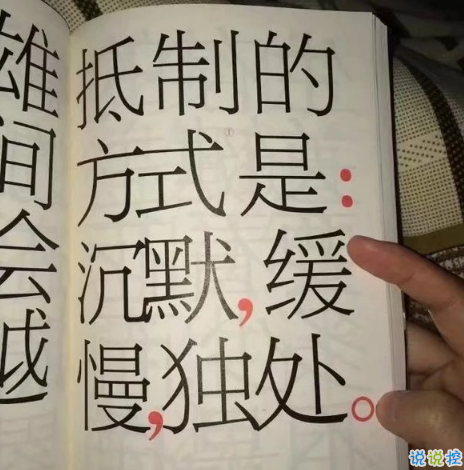 雄
间
会
越
抵制的
方式是：
沉默,缓
慢,独处。
说说控